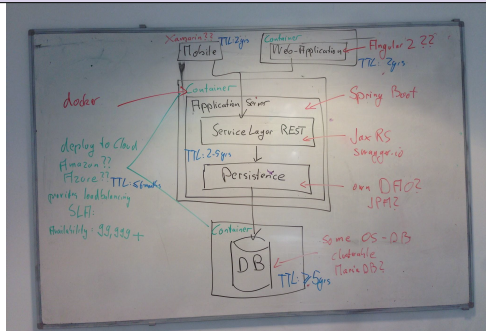 Xamarin??
Mobile
TTL: 2yrs
Container
Web-Application
Angular 2 ??
TTL: 2yrs
docker
Container
Application Server
Spring Boot
Service Layer REST
Jax RS
swagger-io
TTL: 2-5yrs
Persistence
own DAO?
JPA?
deploy to Cloud
Amazon??
Azure??
TTL:
provides loadbalancing
SLA:
Availability: 99,999+
Container
DB
TTL: ≥5yrs
Some OS-DB
clusterable
MariaDB?